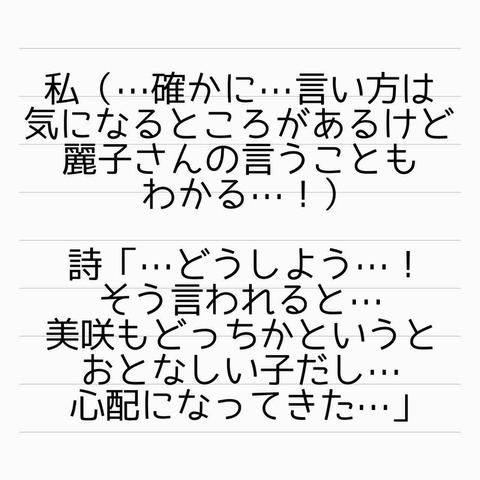 私（…確かに…言い方は
気になるところがあるけど
麗子さんの言うことも
わかる…！）
詩「…どうしよう…！
そう言われると…
美咲もどっちかというと
おとなしい子だし…
心配になってきた…」